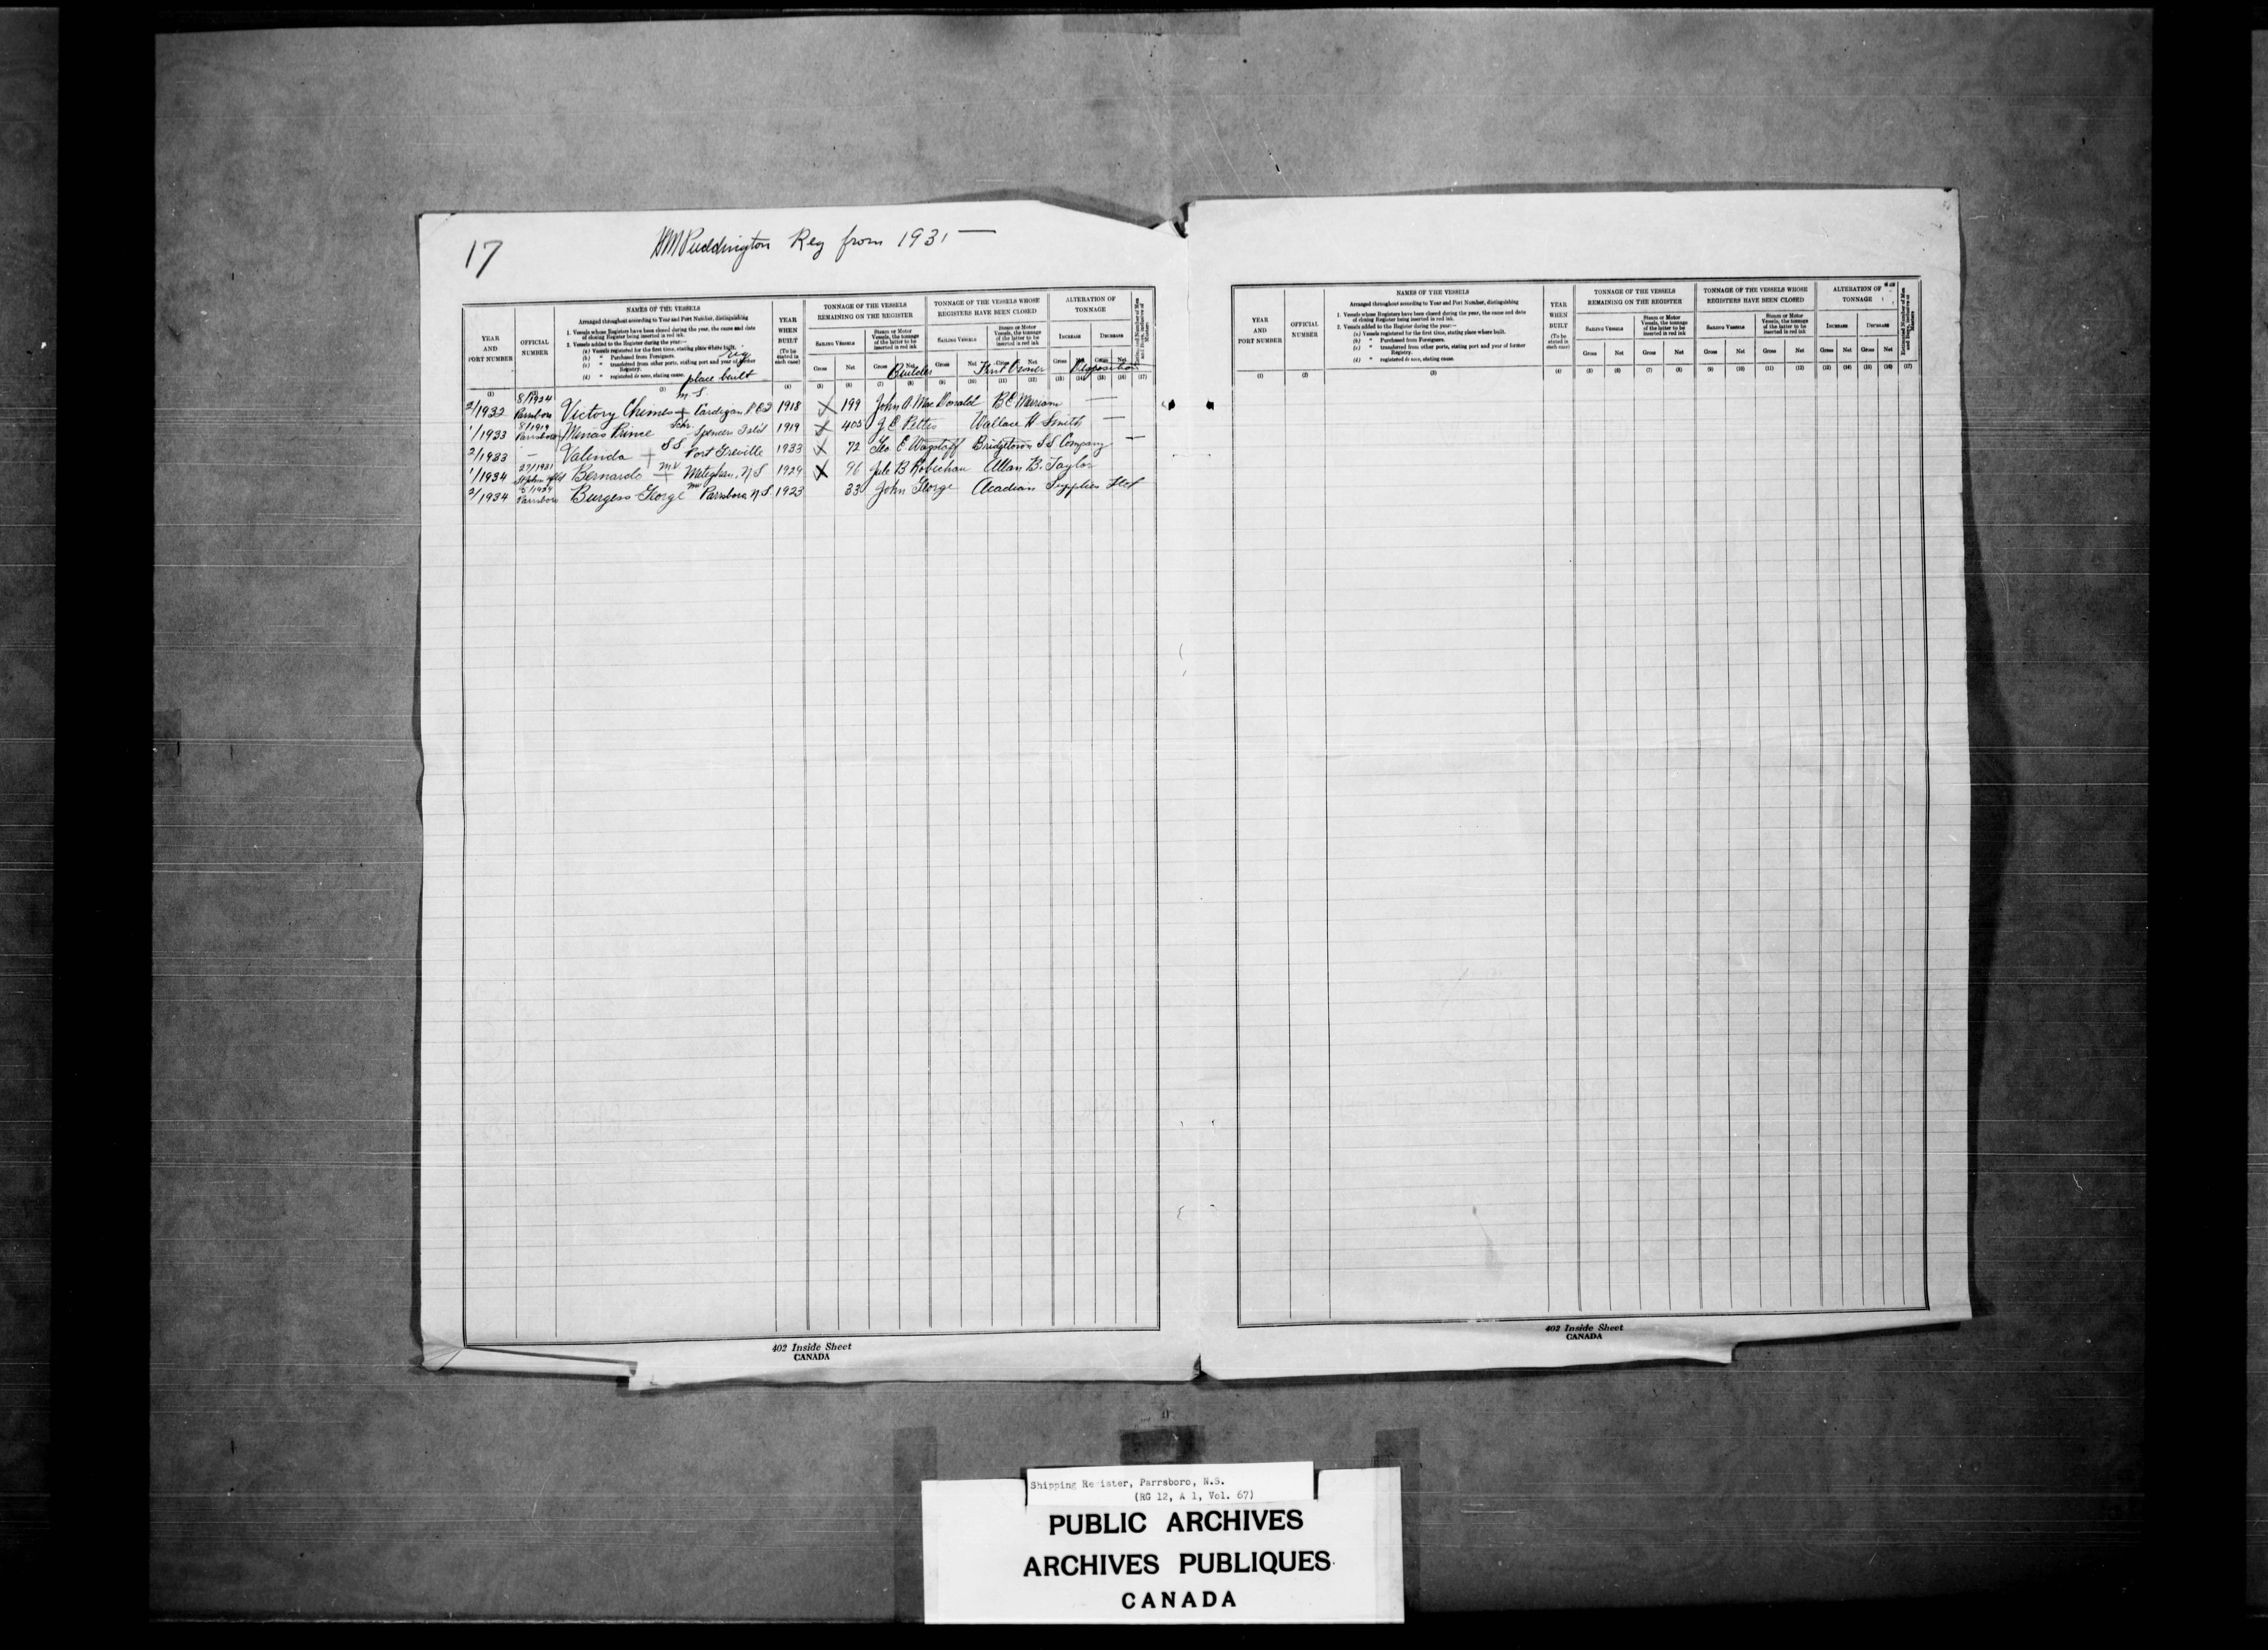 17
HM Puddington Reg from 1931 —
YEAR AND PORT NUMBER
OFFICIAL NUMBER
NAMES OF THE VESSELS
Arranged throughout according to Year and Port Number, distinguishing
1. Vessels whose Registers have been closed during the year, the cause and date
of closing Register being inserted in red ink.
2. Vessels added to the Register during the year:—
(a) Vessels registered for the first time, stating place where built.
(b) " Purchased from Foreigners.
(c) " transferred from other ports, stating port and year of former
Registry.
(d) " registered de novo, stating cause.
Rig
place built
YEAR WHEN BUILT (To be stated in each case)
TONNAGE OF THE VESSELS REMAINING ON THE REGISTER
SAILING VESSELS
Steam or Motor Vessels, the tonnage of the latter to be inserted in red ink
Gross Net Gross Net
Builder
TONNAGE OF THE VESSELS WHOSE REGISTERS HAVE BEEN CLOSED
SAILING VESSELS
Steam or Motor Vessels, the tonnage of the latter to be inserted in red ink
Gross Net Gross Net
First Owner
ALTERATION OF TONNAGE
INCREASE DECREASE
Gross Gross Net
Disposition
Estimated Number of Men and Boys, inclusive of Masters
(1) (3) (4) (5) (6) (7) (8) (9) (10) (11) (12) (13) (14) (15) (16) (17)
2/1932 8/1924 Parrsboro Victory Chimes + M S Cardigan P E I 1918 X 199 John A MacDonald B E Merriam —
1/1933 8/1919 Parrsboro Minas Prince Schr. Spencers Isld 1919 X 405 J E Pettis Wallace H Smith —
2/1933 — Valinda + S S Port Greville 1933 X 72 Geo E Wagstaff Bridgetown S S Company —
1/1934 27/1931 St John Nfld Bernardo + M V Meteghan, N S 1929 X 96 Jule B Robichau Allan B. Taylor
2/1934 Parrsboro Burgess George Parrsboro N S 1923 33 John George Acadian Supplies Ltd
402 Inside Sheet
CANADA
YEAR AND PORT NUMBER
OFFICIAL NUMBER
NAMES OF THE VESSELS
Arranged throughout according to Year and Port Number, distinguishing
1. Vessels whose Registers have been closed during the year, the cause and date
of closing Register being inserted in red ink.
2. Vessels added to the Register during the year:—
(a) Vessels registered for the first time, stating place where built.
(b) " Purchased from Foreigners.
(c) " transferred from other ports, stating port and year of former
Registry.
(d) " registered de novo, stating cause.
YEAR WHEN BUILT (To be stated in each case)
TONNAGE OF THE VESSELS REMAINING ON THE REGISTER
SAILING VESSELS
Steam or Motor Vessels, the tonnage of the latter to be inserted in red ink
Gross Net Gross Net
TONNAGE OF THE VESSELS WHOSE REGISTERS HAVE BEEN CLOSED
SAILING VESSELS
Steam or Motor Vessels, the tonnage of the latter to be inserted in red ink
Gross Net Gross Net
ALTERATION OF TONNAGE
INCREASE DECREASE
Gross Net Gross Net
Estimated Number of Men and Boys, inclusive of Masters
(1) (2) (3) (4) (5) (6) (7) (8) (9) (10) (11) (12) (13) (14) (15) (16) (17)
402 Inside Sheet
CANADA
Shipping Re ister, Parrsboro, N.S.
(RG 12, A 1, Vol. 67)
PUBLIC ARCHIVES
ARCHIVES PUBLIQUES
CANADA